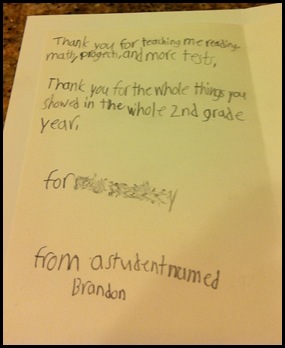 Thank you for teaching me reading
math, progects, and more tests,
Thank you for the whole things you
showed in the whole 2nd grade
year,
for
from a student named
Brandon